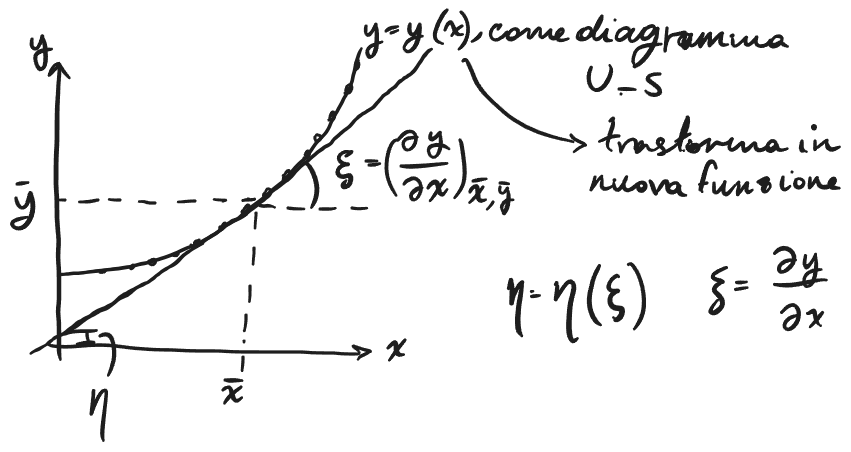 y
y = y(x), come diagramma
U-S
trasforma in
nuova funzione
ξ = (∂y/∂x)x̄,ȳ
ȳ
η = η(ξ) ξ = ∂y/∂x
x
x̄
η